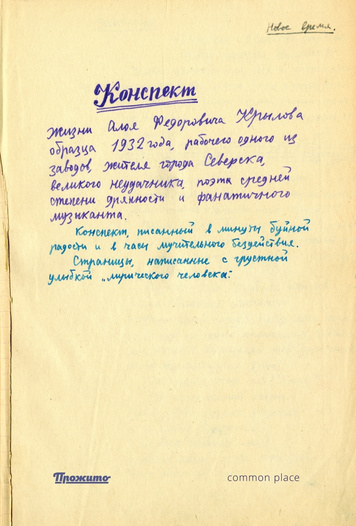 Новое время.
Конспект
жизни Алоя Федоровича Крылова
образца 1932 года, рабочего одного из
заводов, жителя города Северска,
великого неудачника, поэта средней
степени дрянности и фанатичного
музыканта.
Конспект, писанный в минуты буйной
радости и в часы мучительного бездействия.
Страницы, написанные с грустной
улыбкой „лирического человека“.
Прожито
common place